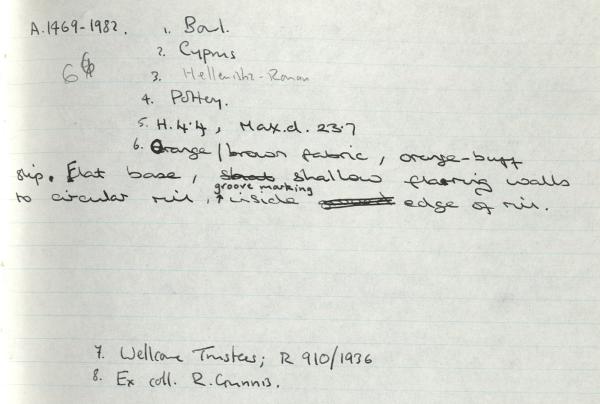 A.1469-1982. 1. Bowl.
2. Cyprus
3. Hellenistic-Roman
4. Pottery.
5. H.4.4, Max.d. 23.7
6. Orange/brown fabric, orange-buff
slip. Flat base, shallow flaring walls
groove marking
to circular rim, inside edge of rim.
7. Wellcome Trustees; R 910/1936
8. Ex coll. R. Gunnis.